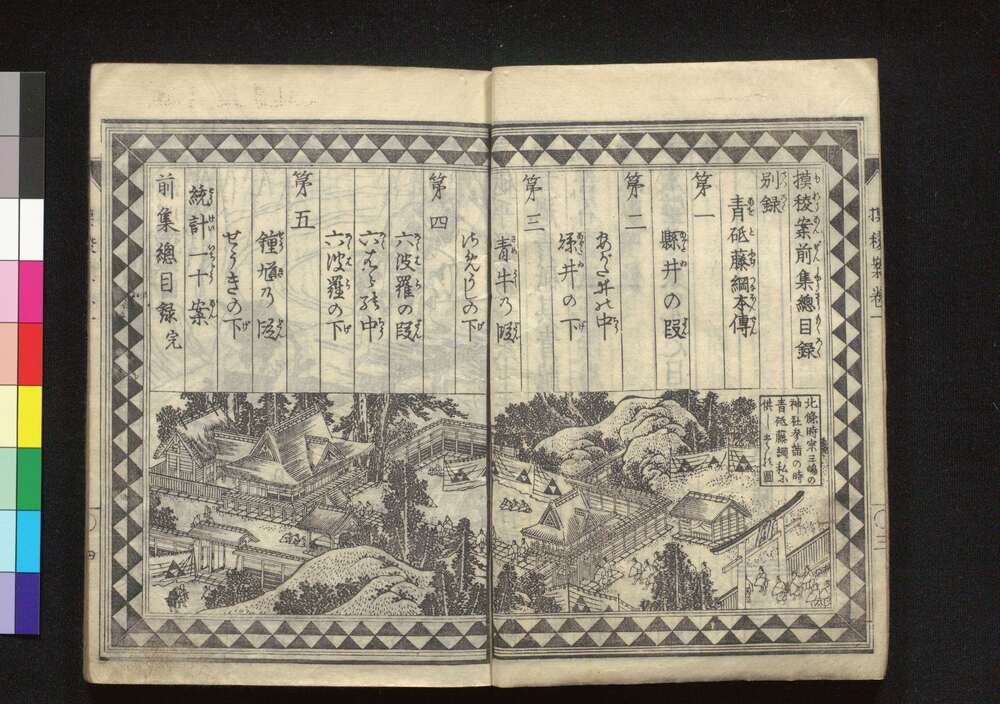 摸稜案前集總目録
別録
青砥藤綱本傳
第一
縣井の段
第二
あがた井の中
縣井の下
第三
青牛の段
第四
六波羅の段
六はらの中
六波羅の下
第五
鐘馗の段
せうきの下
統計一十案
前集總目録完
北條時宗三嶋の
神社參詣の時
青砥藤綱私に
供しまゐる圖
摸稜案卷一
〇三
〇四